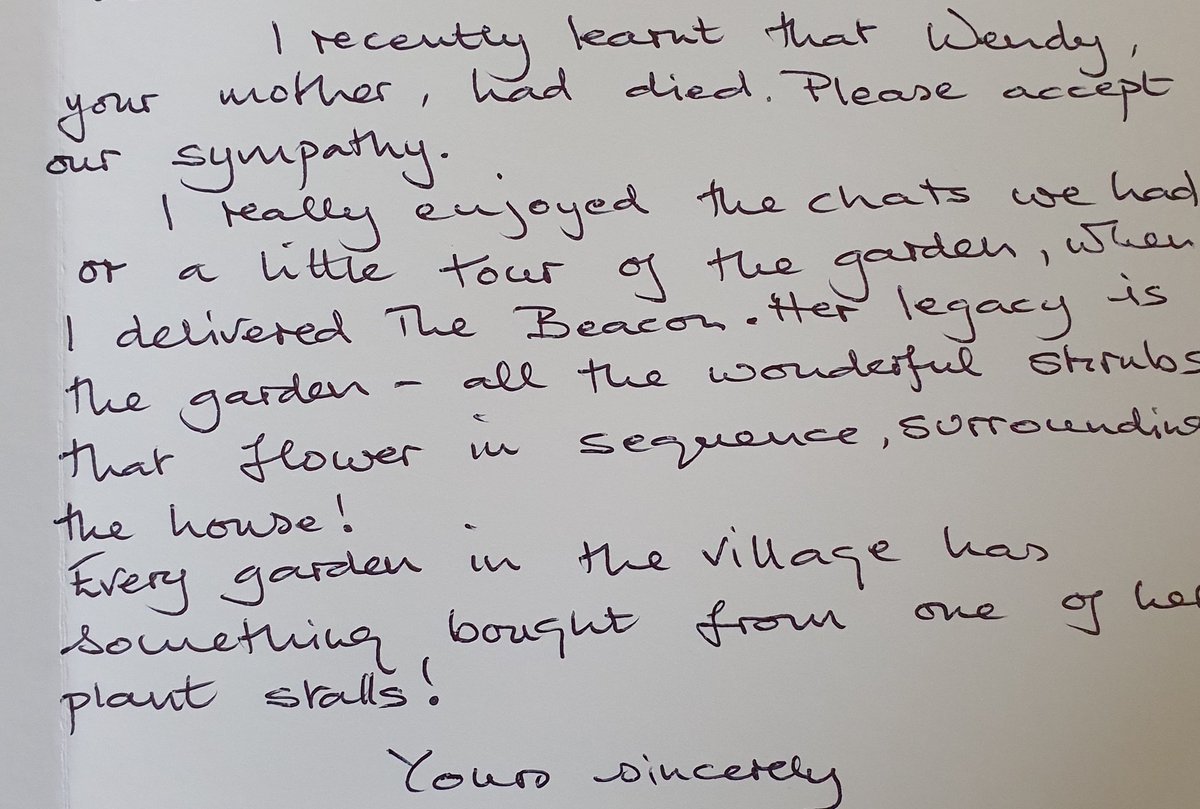 I recently learnt that Wendy,
your mother, had died. Please accept
our sympathy.
I really enjoyed the chats we had
or a little tour of the garden, when
I delivered The Beacon. Her legacy is
the garden - all the wonderful shrubs
that flower in sequence, surrounding
the house!
Every garden in the village has
something bought from one of her
plant stalls!
Yours sincerely